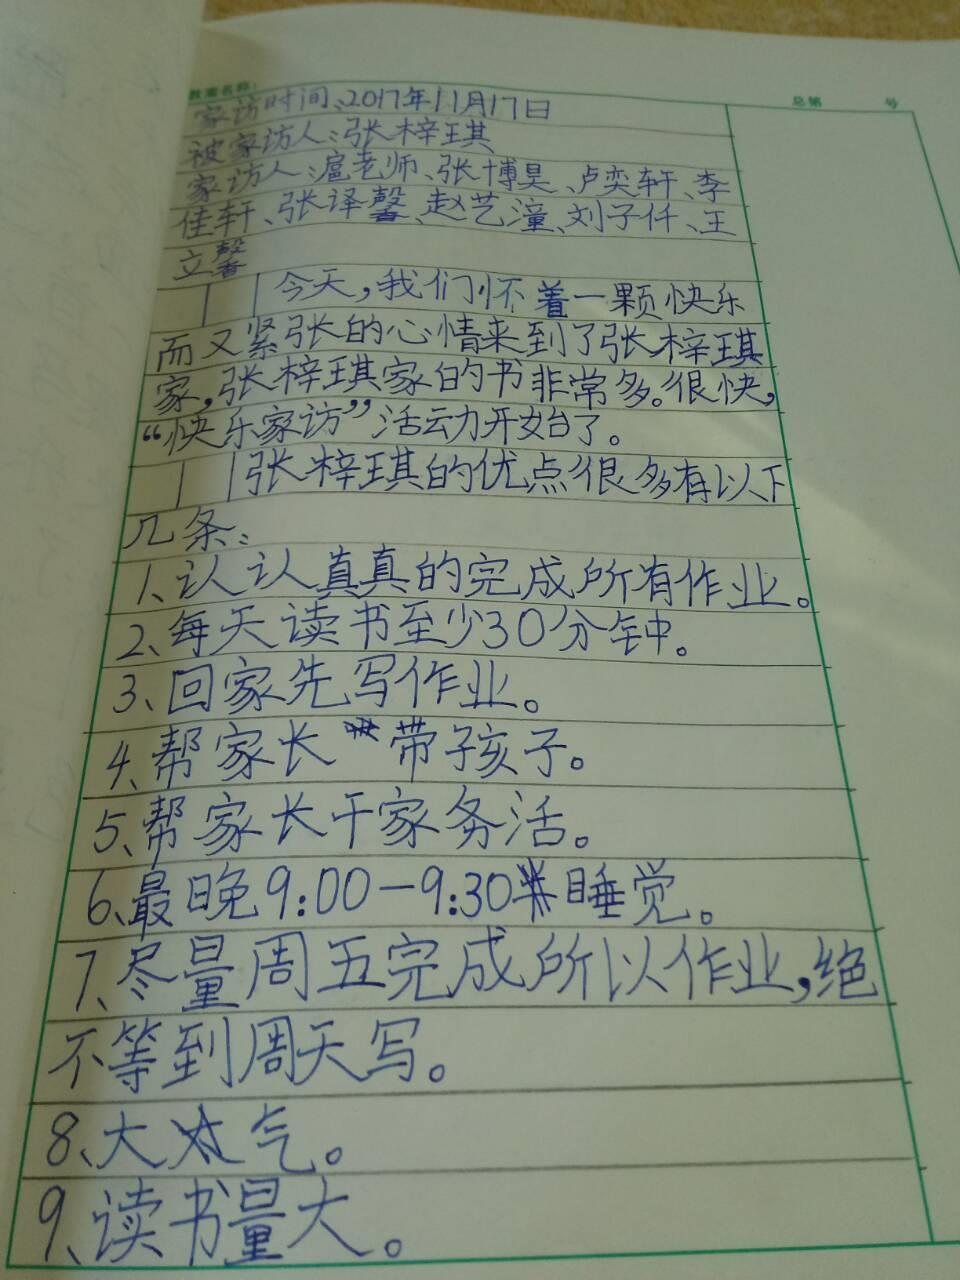 教案名称: 总第 号
家访时间:2017年11月17日
被家访人:张梓琪
家访人:扈老师、张博昊、卢奕轩、李
佳轩、张译馨、赵艺潼、刘子仟、王
立馨
今天,我们怀着一颗快乐
而又紧张的心情来到了张梓琪
家,张梓琪家的书非常多。很快,
“快乐家访”活动开始了。
张梓琪的优点很多有以下
几条:
1、认认真真的完成所有作业。
2、每天读书至少30分钟。
3、回家先写作业。
4、帮家长带子孩子。
5、帮家长干家务活。
6、最晚9:00-9:30睡觉。
7、尽量周五完成所以作业,绝
不等到周天写。
8、大气。
9、读书量大。